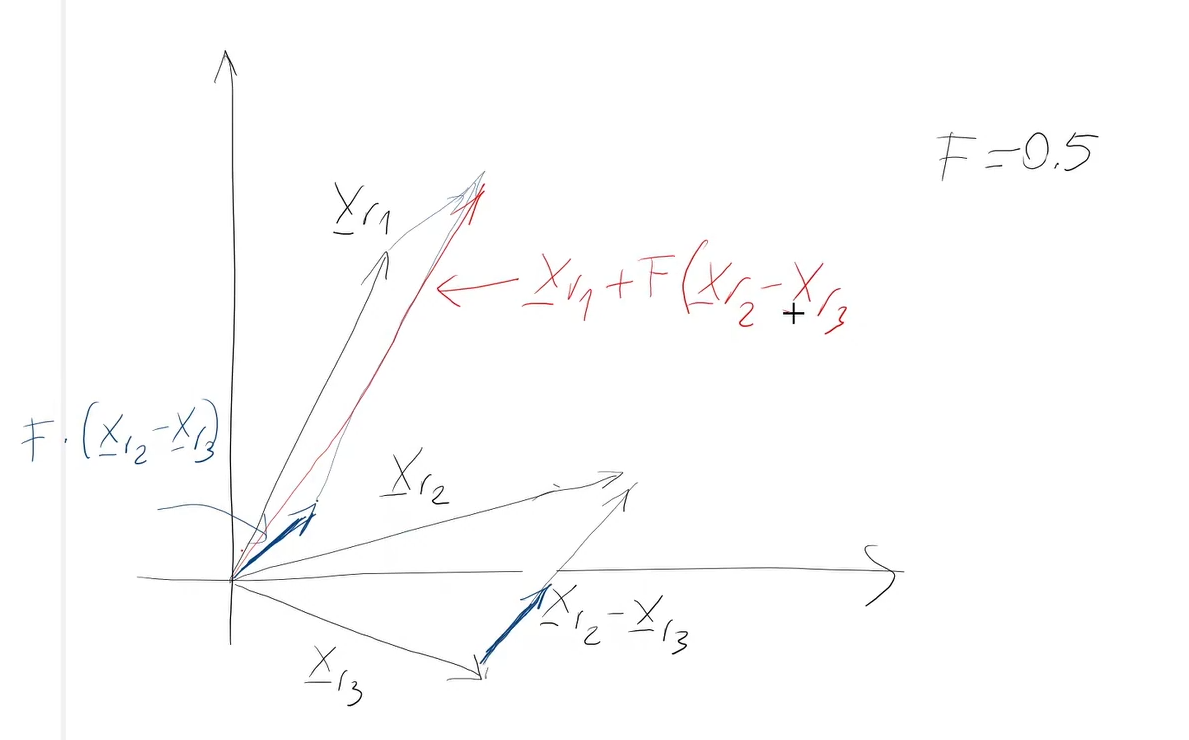 F=0.5
X_r1
X_r1+F(X_r2-X_r3
F.(X_r2-X_r3)
X_r2
X_r2-X_r3
X_r3